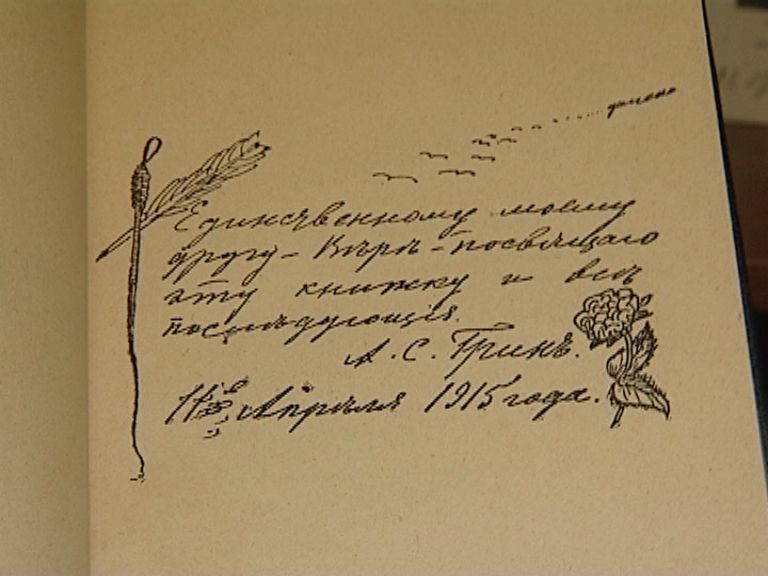 Единственному моему
другу - Вѣрѣ - посвящаю
эту книжку и всѣ
послѣдующія.
А. С. Гринъ.
11 Апрѣля 1915 года.